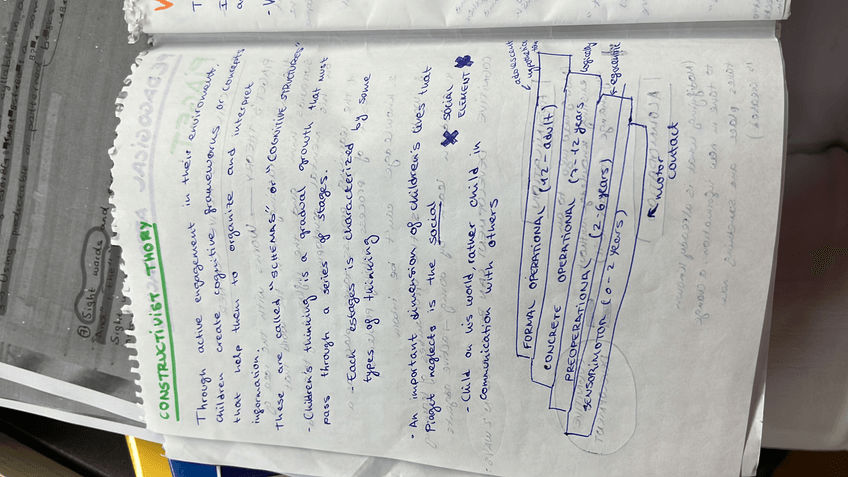 CONSTRUCTIVIST THORY
Through active engagement in their enviroment.
children create cognitive frameworks or concepts
that help them to organize and interpret
information.
These are called "SCHEMAS" or "COGNITIVE STRUCTURES"
- Children's thinking is a gradual growth that must
pass through a seies of stages.
- Each estages is characterized by some
types of thinking
- An important dimension of children's lives that
Piaget neglects is the social
SOCIAL
ELEMENT
- Child on is world rather child in
communication with others
adolescent
FORMAL OPERATIONAL (12 - adult)
logically
CONCRETE OPERATIONAL (7 - 12 years
egocentric
PREOPERATIONAL (2 - 6 years)
SENSORIMOTOR (0 - 2 years)
motor
contact
Sight words and
Sight